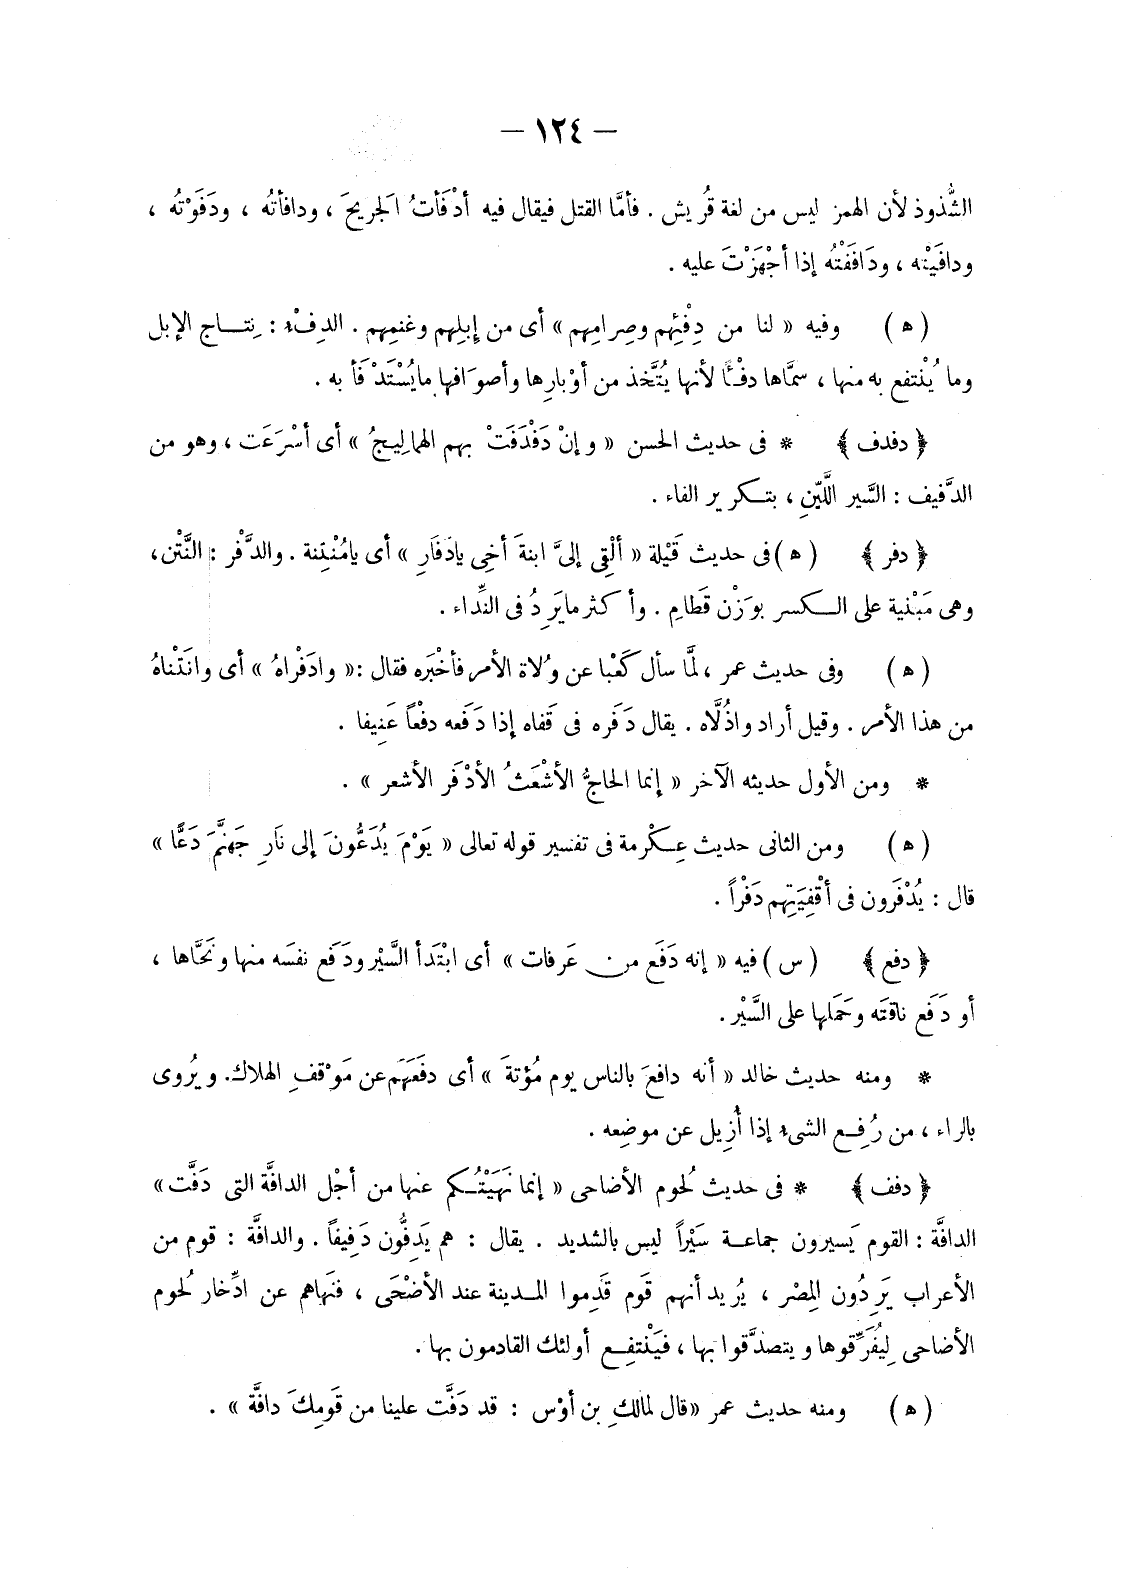 — ١٢٤ —
الشُّذوذ لأن الهمز ليس من لغة قُريش . فأمَّا القتل فيقال فيه أدْفَأتُ الَجريحَ ، ودافأتُه ، ودَفَوْتُه ،
ودافَيْته ، ودَافَفْتُه إذا أجْهَزْتَ عليه .
( ه ) وفيه « لنا من دِفْئِهم وصِرامِهم » أى من إبِلِهم وغنمِهم . الدِفْء : نِتــاج الإبل
وما يُنْتفع به منها ، سمَّاها دفْـًٔا لأنها يُتَّخذ من أوْبارِها وأصوَافها مايُسْتَدْفَأ به .
﴿ دفدف ﴾ * فى حديث الحسن « وإنْ دَفْدَفَتْ بهم الهمالِيجُ » أى أسْرَعَت ، وهو من
الدَّفيف : السَّير اللَّيّنِ ، بتـكرير الفاء .
﴿ دفر ﴾ ( ه ) فى حديث قَيْلة « ألْقِى إلىَّ ابنةَ أخِى يادَفَارِ » أى يامُنْتِنة . والدَّفْر : النَّتْن ،
وهى مَبْنية على الـكسر بوَزْن قَطامِ . وأكثر مايَرِدُ فى النِّداء .
( ه ) وفى حديث عمر ، لمَّا سأل كَعْبا عن وُلاة الأمر فأخْبَره فقال :« وادَفْراهُ » أى وانَتْناهُ
من هذا الأمر . وقيل أراد واذُلَّاه . يقال دَفَره فى قَفاه إذا دَفعه دفْعاً عَنِيفا .
* ومن الأول حديثه الآخر « إنما الحاجُّ الأشْعَثُ الأدْفَر الأشعر » .
( ه ) ومن الثانى حديث عِـكْرمة فى تفسير قوله تعالى « يَوْمَ يُدَعُّونَ إلى نَارِ جَهنَّمَ دَعًّا »
قال : يُدْفَرون فى أقْفِيَتِهم دَفْراً .
﴿ دفع ﴾ ( س ) فيه « إنه دَفَع من عَرفات » أى ابْتَدأ السَّيْر ودَفَع نفسَه منها ونَحَّاها ،
أو دَفَع ناقتَه وحَمَلها على السَّيْر .
* ومنه حديث خالد « أنه دافعَ بالناس يوم مُؤتةَ » أى دفَعَهَم عن مَوْقفِ الهلاك. ويُروى
بالراء ، من رُفِـع الشىء إذا أُزِيل عن موضِعه .
﴿ دفف ﴾ * فى حديث لُحوم الأضاحى « إنما نَهَيْتُـكم عنها من أجْل الدافَّة التى دَفَّت »
الدافَّة : القوم يَسيرون جماعـة سَيْراً ليس بالشديد . يقال : هم يَدِفُّون دَفِيفاً . والدافَّة : قوم من
الأعراب يَرِدُون المِصْر ، يُريد أنهم قَوم قَدِموا المـدينة عند الأضْحَى ، فنَهاهم عن ادِّخار لُحوم
الأضاحى لِيُفَرِّقوها ويتصدَّقوا بها ، فيَنْتفِـع أولئك القادمون بها .
( ه ) ومنه حديث عمر «قال لمالكِ بن أوْس : قد دَفَّت علينا من قَومِكَ دافَّة » .